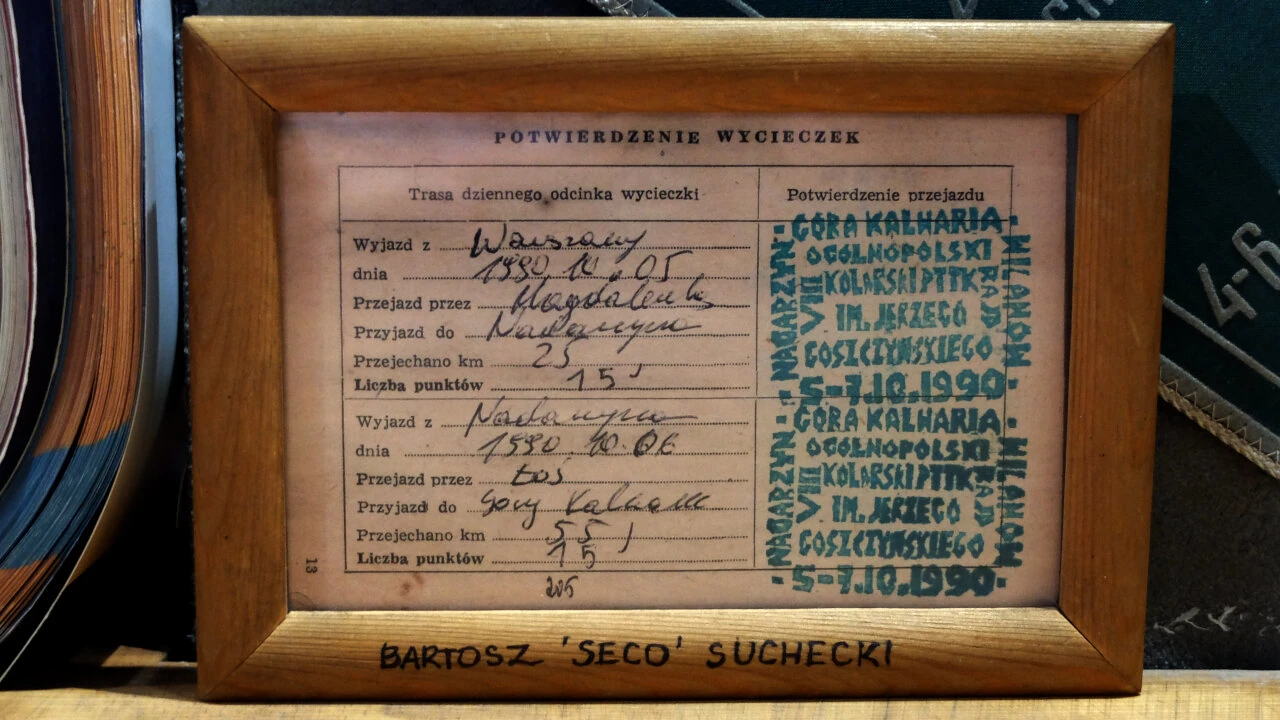 POTWIERDZENIE WYCIECZEK
Trasa dziennego odcinka wycieczki
Potwierdzenie przejazdu
Wyjazd z Warszawy
dnia 1990.10.05
Przejazd przez Magdalenkę
Przyjazd do Nadarzyna
Przejechano km 25
Liczba punktów 15
GÓRA KALWARIA
OGÓLNOPOLSKI
VIII KOLARSKI PTTK RAJD
IM. JERZEGO
GOSZCZYŃSKIEGO
5-7.10.1990
NADARZYN
MILANÓW
Wyjazd z Nadarzyna
dnia 1990.10.06
Przejazd przez Łoś
Przyjazd do Góry Kalwarii
Przejechano km 55
Liczba punktów 15
GÓRA KALWARIA
OGÓLNOPOLSKI
VIII KOLARSKI PTTK RAJD
IM. JERZEGO
GOSZCZYŃSKIEGO
5-7.10.1990
NADARZYN
MILANÓW
13
205
BARTOSZ 'SECO' SUCHECKI
4-6